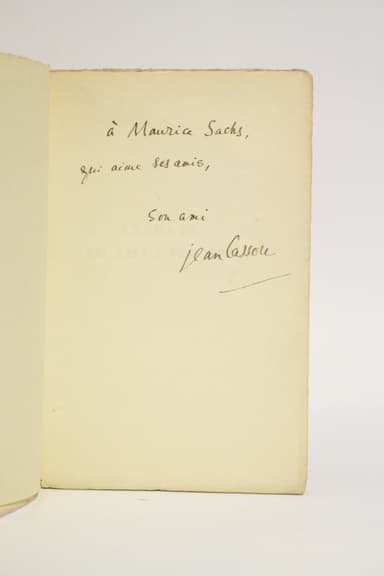 à Maurice Sachs,
qui aime ses amis,
son ami
Jean Cassou